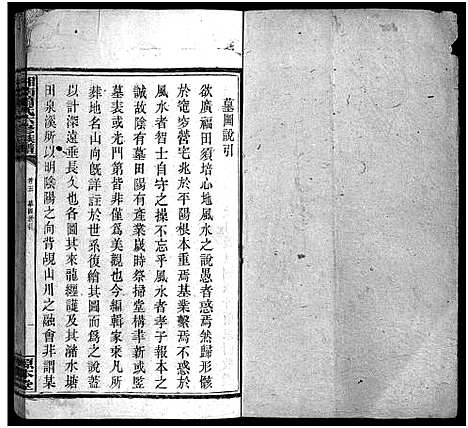 墓圖說引
欲廣福田須培心地風水之說愚者惑焉然歸形骸
於窀穸營宅兆於平陽根本重焉基業繫焉不惑乎
風水者智士自守之操不忘乎風水者孝子報本之
誠故陰有墓田陽有產業歲時祭掃堂構聿新或監
墓表或光門第皆非僅為美觀也今編輯家乘凡所
葬地名山向旣詳註於世系復繪其圖而為之說蓋
以計深遠垂長久也各圖其來龍纏護及其瀦水塘
田泉溪所以明陰陽之向背覘山川之融會非謂某
氏六修族譜
卷五 墓圖說引
原本堂